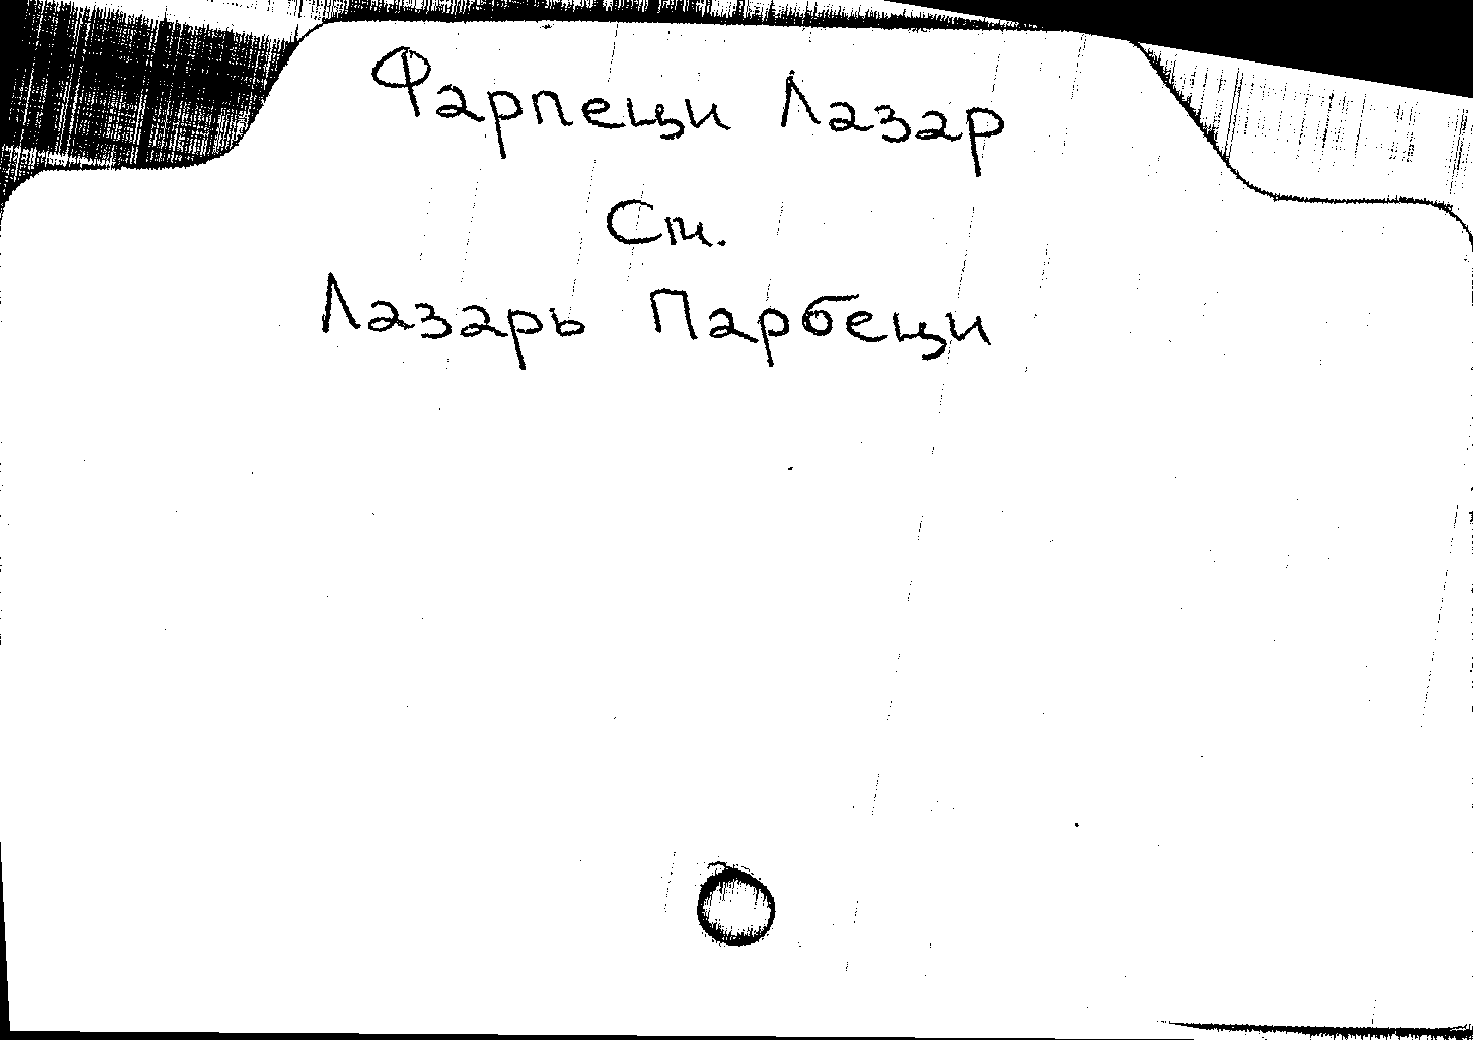 Фарпеци Лазар
См.
Лазарь Парбеци